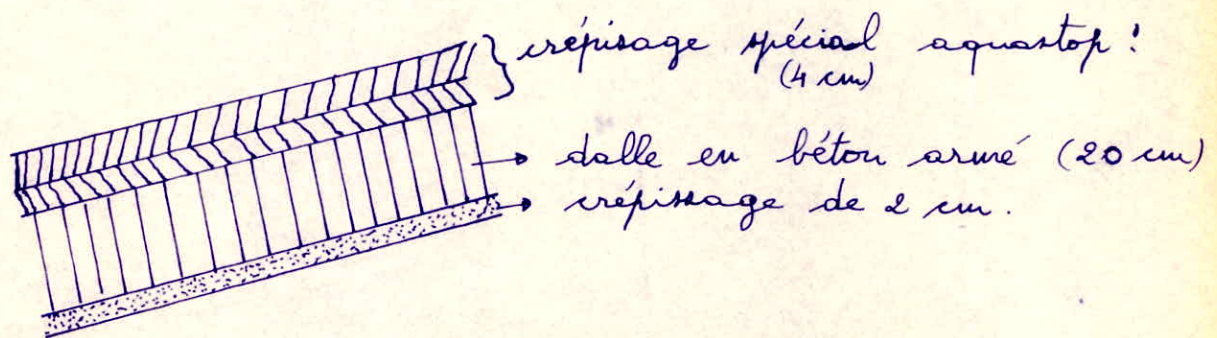 crépisage spécial aquastop !
(4 cm)
dalle en béton armé (20 cm)
crépissage de 2 cm.